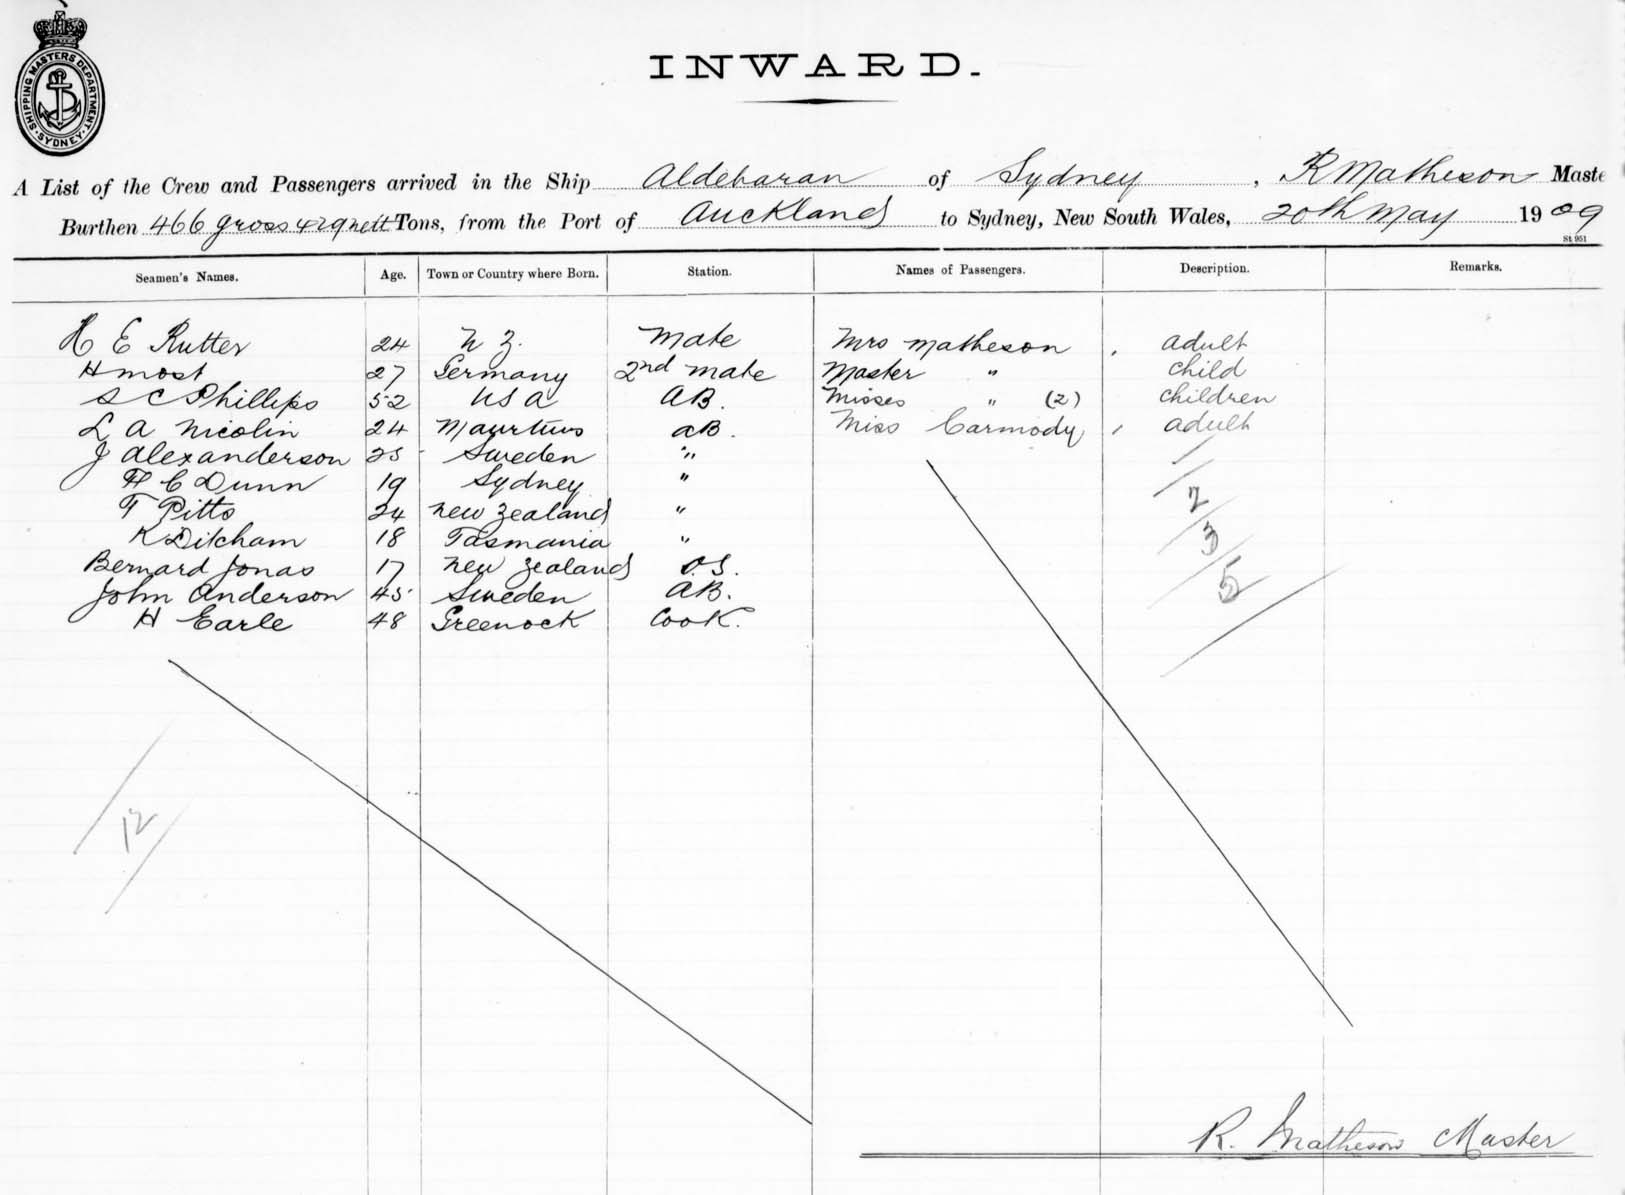 SHIPPING MASTERS DEPARTMENT. SYDNEY.
INWARD.
A List of the Crew and Passengers arrived in the Ship Aldebaran of Sydney, R Matheson Maste
Burthen 466 gross 419 nett Tons, from the Port of Auckland to Sydney, New South Wales, 20th May 1909
St 951
Seamen's Names. Age. Town or Country where Born. Station. Names of Passengers. Description. Remarks.
H E Rutter 24 N Z. Mate Mrs Matheson , adult
H Most 27 Germany 2nd Mate Master " child
S C Phillips 52 U S A AB. Misses " (2) children
L A Nicolin 24 Mauritius AB. Miss Carmody , adult
J Alexanderson 25 Sweden "
H C Dunn 19 Sydney "
T Pitts 24 New Zealand "
K Ditcham 18 Tasmania "
Bernard Jonas 17 New Zealand O.S.
John Anderson 45 Sweden AB.
H Earle 48 Greenock Cook.
2
3
5
12
R. Matheson Master